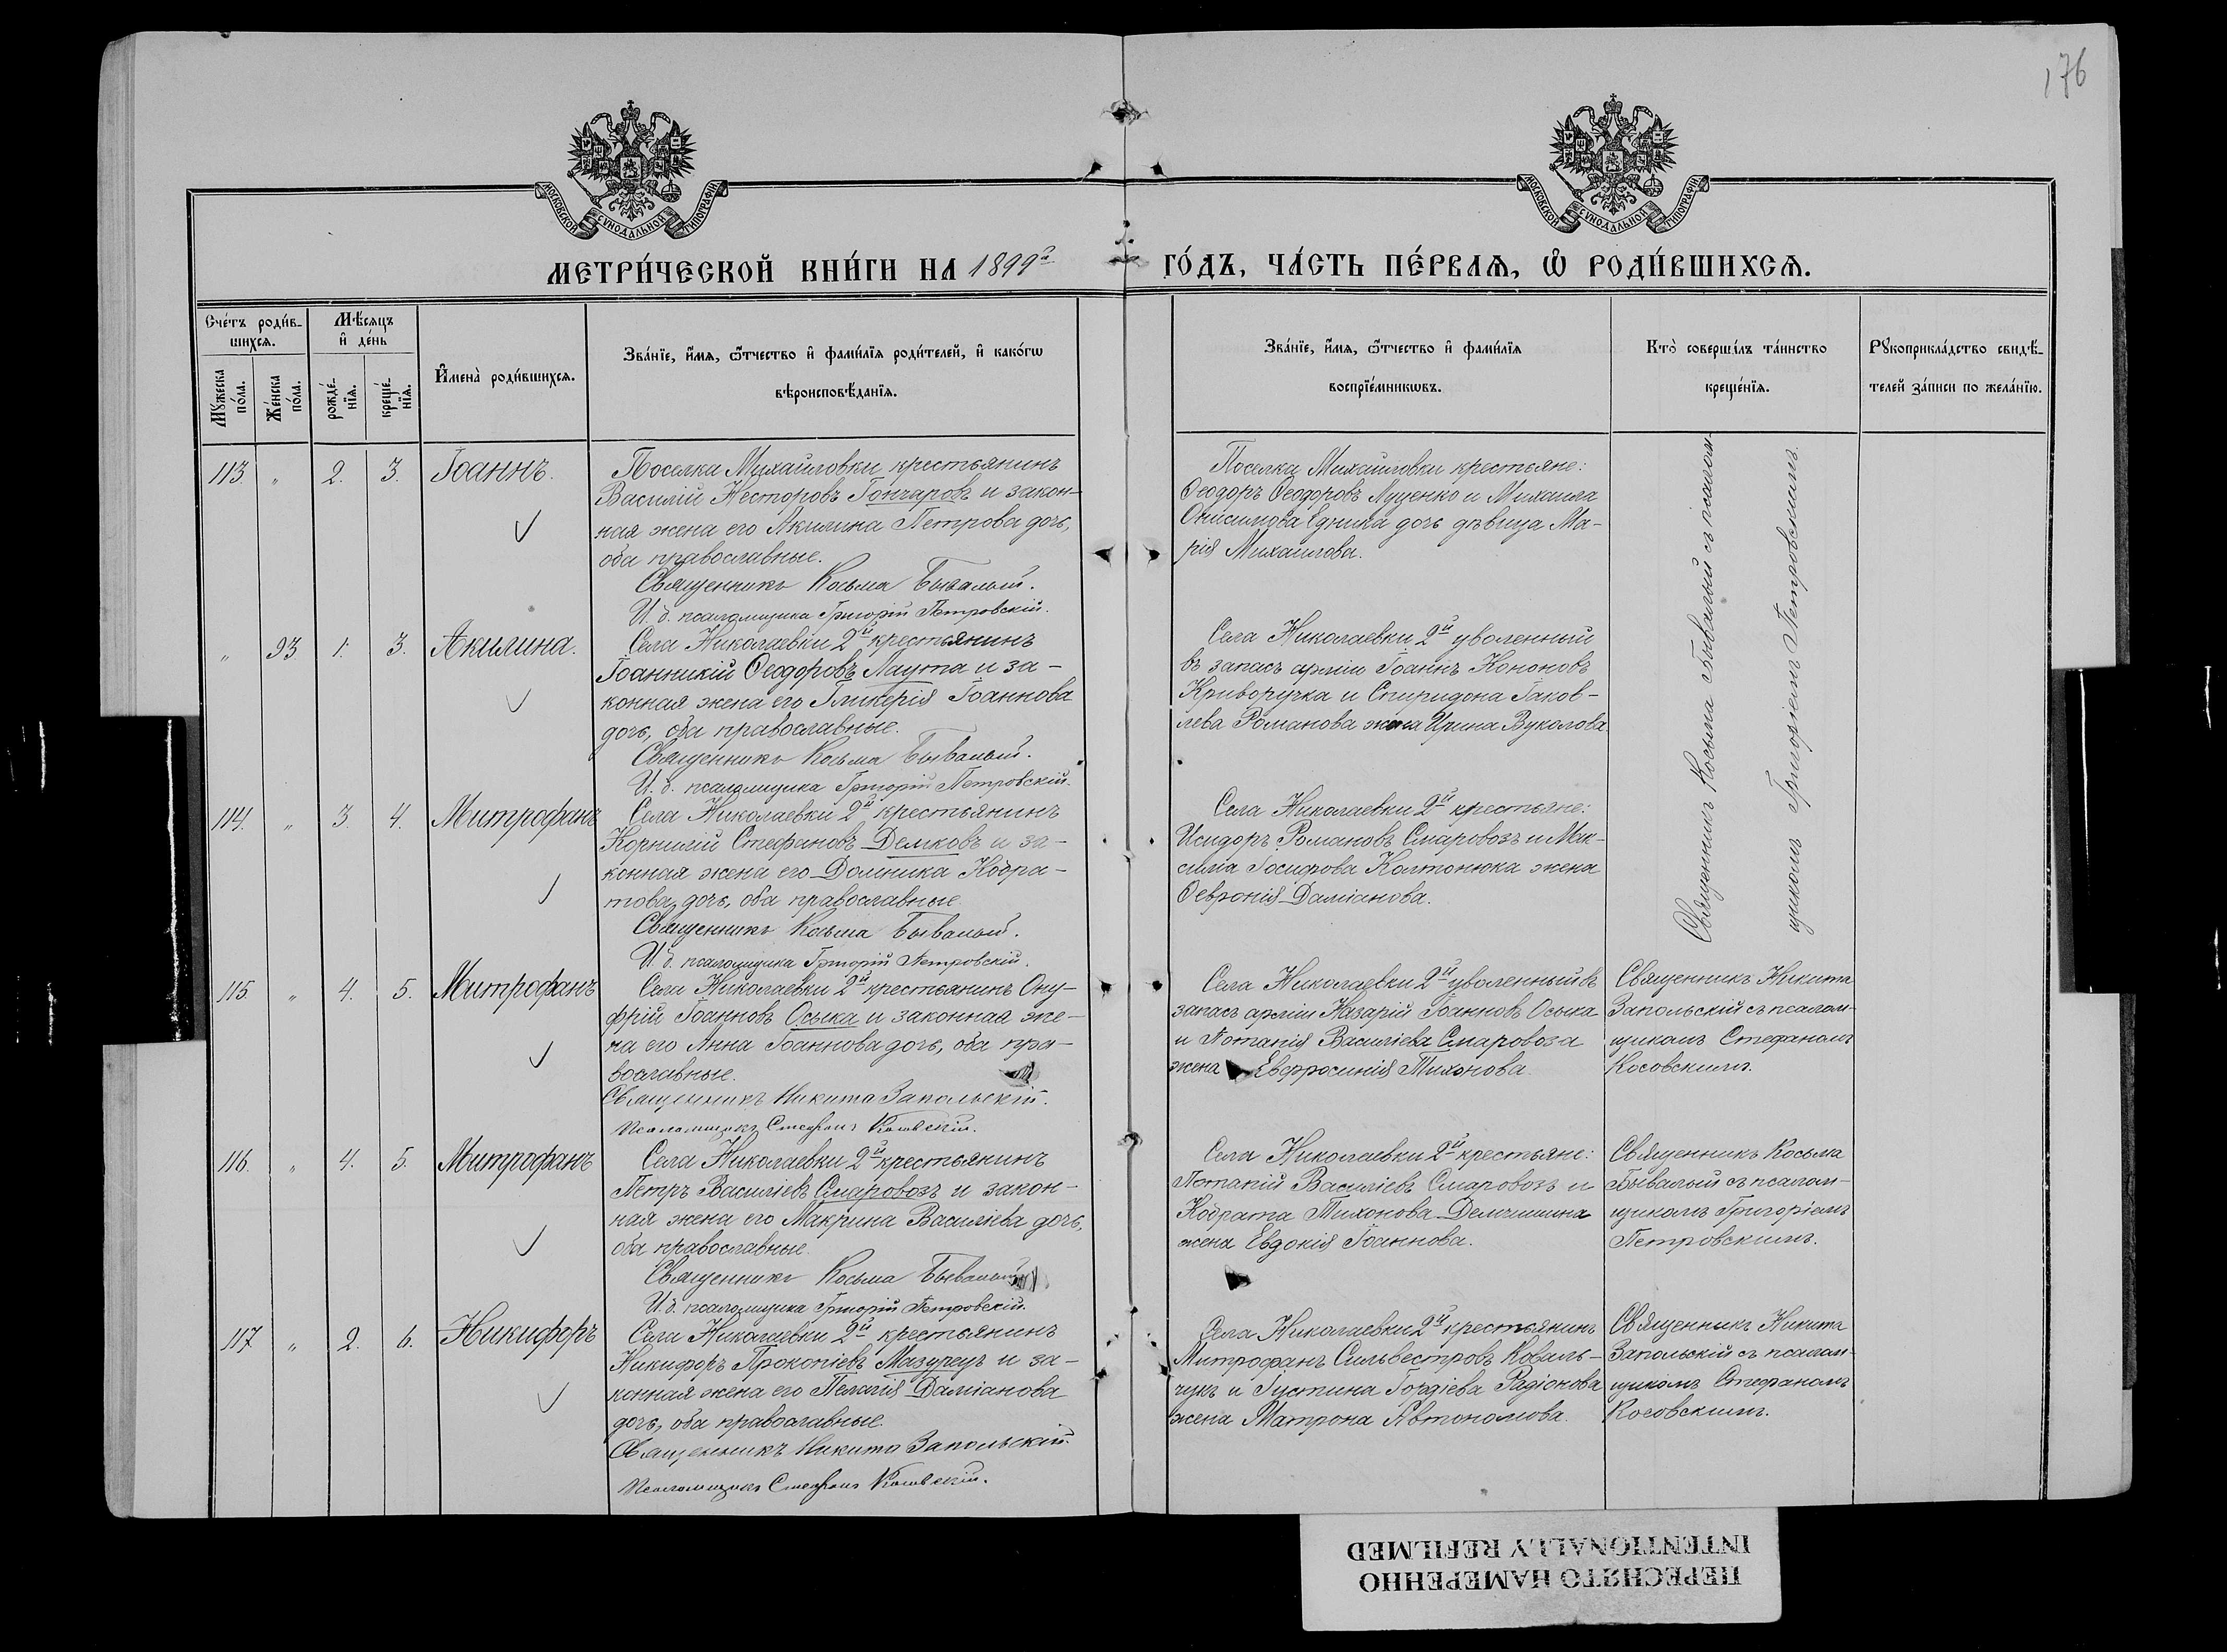 176
МОСКОВСКОЙ СѴНОДАЛЬНОЙ ТИПОГРАФІИ
МОСКОВСКОЙ СѴНОДАЛЬНОЙ ТИПОГРАФІИ
МЕТРИ́ЧЕСКОЙ КНИ́ГИ НА 1899й ГО́ДЪ, ЧА́СТЬ ПЕ́РВАѦ, Ѽ РОДИ́ВШИХСѦ.
Сче́тъ роди́в-
шихсѧ.
Мꙋ́жеска
по́ла.
Же́нска
по́ла.
Мѣ́сѧцъ
и҆ де́нь
рожде́-
нїѧ.
креще́-
нїѧ.
И҆мена̀ роди́вшихсѧ.
Зва́нїе, и҆́мѧ, ѻ҆́тчество и҆ фами́лїѧ роди́телей, и҆ како́гѡ
вѣроисповѣ́данїѧ.
Зва́нїе, и҆́мѧ, ѻ҆́тчество и҆ фами́лїѧ
воспрїе́мникѡвъ.
Кто̀ соверша́лъ та́инство
креще́нїѧ.
Рꙋкоприкла́дство свидѣ́-
телей за́писи по жела́нїю.
113. " 2. 3. Іоаннъ.
Поселка Михайловки крестьянинъ
Василій Несторовъ Гончаровъ и закон-
ная жена его Акилина Петрова дочь,
оба православные.
Священникъ Косьма Бывалый.
И. д. псаломщика Григорій Петровскій.
Поселка Михайловки крестьяне:
Ѳеодоръ Ѳеодоровъ Луценко и Михаила
Онисимова Едника дочь дѣвица Ма-
рія Михаилова.
Священникъ Косьма Бывалый съ псалом-
щикомъ Григоріемъ Петровскимъ.
" 93. 1. 3. Акилина.
Села Николаевки 2й крестьянинъ
Іоанникій Ѳеодоровъ Лаута и за-
конная жена его Гликерія Іоаннова
дочь, оба православные.
Священникъ Косьма Бывалый.
И. д. псаломщика Григорій Петровскій.
Села Николаевки 2й уволенный
въ запасъ арміи Іоаннъ Кононовъ
Криворучка и Спиридона Іаков-
лева Романова жена Ирина Вуколова.
114. " 3. 4. Митрофанъ
Села Николаевки 2й крестьянинъ
Корнилій Стефановъ Демковъ и за-
конная жена его Домника Кодра-
това дочь, оба православные
Священникъ Косьма Бывалый.
И. д. псаломщика Григорій Петровскій.
Села Николаевки 2й крестьяне:
Исидоръ Романовъ Смаровозъ и Мак-
сима Іосифова Колтонюка жена
Ѳевронія Даміанова.
115. " 4. 5. Митрофанъ
Села Николаевки 2й крестьянинъ Ону-
фрій Іоанновъ Осыка и законная же-
на его Анна Іоаннова дочь, оба пра-
вославные.
Священникъ Никита Запольскій.
Псаломщикъ Стефанъ Косовскій.
Села Николаевки 2й уволенный въ
запасъ арміи Назарій Іоанновъ Осыка
и Потапія Василіева Смаровоза
жена Евфросинія Тихонова
Священникъ Никита
Запольскій съ псалом-
щикомъ Стефаномъ
Косовскимъ.
116. " 4. 5. Митрофанъ
Села Николаевки 2й крестьянинъ
Петръ Василіевъ Смаровозъ и закон-
ная жена его Макрина Василіева дочь,
оба православные.
Священникъ Косьма Бывалый
И. д. псаломщика Григорій Петровскій.
Села Николаевки 2й крестьяне:
Потапій Василіевъ Смаровозъ и
Кодрата Тихонова Демчишина
жена Евдокія Іоаннова.
Священникъ Косьма
Бывалый съ псалом-
щикомъ Григоріемъ
Петровскимъ.
117 " 2. 6. Никифоръ
Села Николаевки 2й крестьянинъ
Никифоръ Прокопіевъ Мазурецъ и за-
конная жена его Пелагія Даміанова
дочь, оба православные.
Священникъ Никита Запольскій.
Псаломщикъ Стефанъ Косовскій.
Села Николаевки 2й крестьянинъ
Митрофанъ Сильвестровъ Коваль-
чукъ и Іустина Гордіева Радіонова
жена Матрона Автономова.
Священникъ Никита
Запольскій съ псалом-
щикомъ Стефаномъ
Косовскимъ.
ПЕРЕСНЯТО НАМЕРЕННО
INTENTIONALLY REFILMED